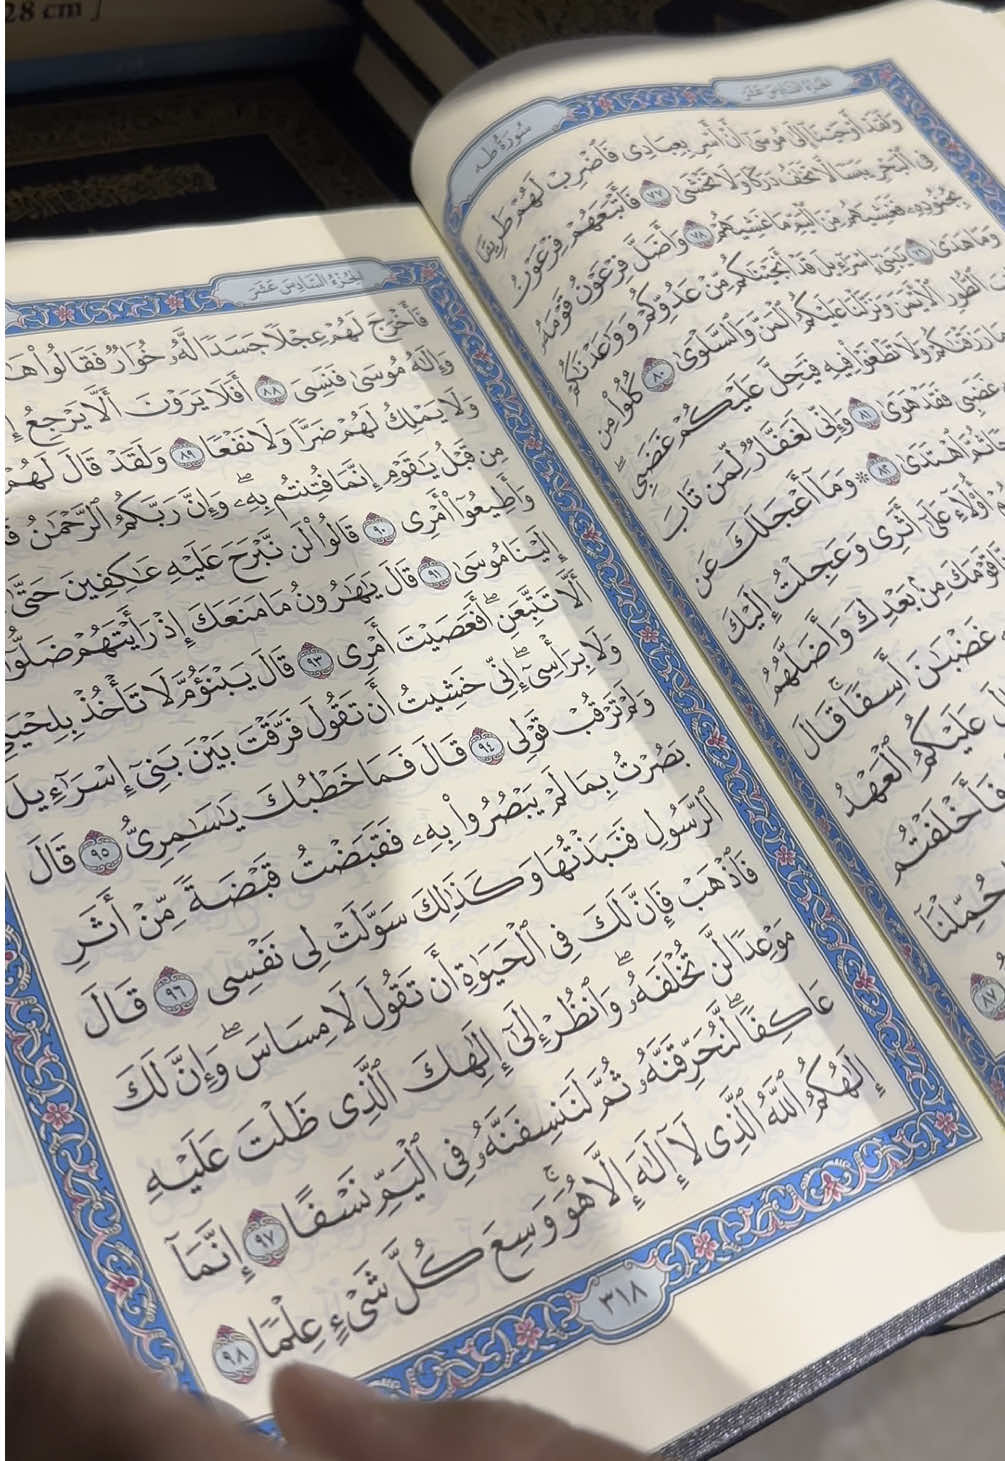 28 cm ]
سُورَةُ طه
الجُزْءُ السَّادِسَ عَشَرَ
وَلَقَدْ أَوْحَيْنَآ إِلَىٰ مُوسَىٰٓ أَنْ أَسْرِ بِعِبَادِى فَٱضْرِبْ لَهُمْ طَرِيقًا
فِى ٱلْبَحْرِ يَبَسًا لَّا تَخَٰفُ دَرَكًا وَلَا تَخْشَىٰ ٧٧ فَأَتْبَعَهُمْ فِرْعَوْنُ
بِجُنُودِهِۦ فَغَشِيَهُم مِّنَ ٱلْيَمِّ مَا غَشِيَهُمْ ٧٨ وَأَضَلَّ فِرْعَوْنُ قَوْمَهُۥ
وَمَا هَدَىٰ ٧٩ يَٰبَنِىٓ إِسْرَٰٓءِيلَ قَدْ أَنجَيْنَٰكُم مِّنْ عَدُوِّكُمْ وَوَٰعَدْنَٰكُمْ
ٱلطُّورِ ٱلْأَيْمَنَ وَنَزَّلْنَا عَلَيْكُمُ ٱلْمَنَّ وَٱلسَّلْوَىٰ ٨٠ كُلُوا۟ مِن
مَا رَزَقْنَٰكُمْ وَلَا تَطْغَوْا۟ فِيهِ فَيَحِلَّ عَلَيْكُمْ غَضَبِى ۖ
غَضَبِى فَقَدْ هَوَىٰ ٨١ وَإِنِّى لَغَفَّارٌ لِّمَن تَابَ
ثُمَّ ٱهْتَدَىٰ ٨٢ ۞ وَمَآ أَعْجَلَكَ عَن
أُو۟لَآءِ عَلَىٰٓ أَثَرِى وَعَجِلْتُ إِلَيْكَ
قَوْمَكَ مِنۢ بَعْدِكَ وَأَضَلَّهُمُ
غَضْبَٰنَ أَسِفًا ۚ قَالَ
عَلَيْكُمُ ٱلْعَهْدُ
فَأَخْلَفْتُم
حُمِّلْنَآ
٨٧
الجُزْءُ السَّادِسَ عَشَرَ
فَأَخْرَجَ لَهُمْ عِجْلًا جَسَدًا لَّهُۥ خُوَارٌ فَقَالُوا۟ هَٰ
وَإِلَٰهُ مُوسَىٰ فَنَسِىَ ٨٨ أَفَلَا يَرَوْنَ أَلَّا يَرْجِعُ
وَلَا يَمْلِكُ لَهُمْ ضَرًّا وَلَا نَفْعًا ٨٩ وَلَقَدْ قَالَ لَهُمْ
مِن قَبْلُ يَٰقَوْمِ إِنَّمَا فُتِنتُم بِهِۦ ۖ وَإِنَّ رَبَّكُمُ ٱلرَّحْمَٰنُ
وَأَطِيعُوٓا۟ أَمْرِى ٩٠ قَالُوا۟ لَن نَّبْرَحَ عَلَيْهِ عَٰكِفِينَ حَتَّىٰ
إِلَيْنَا مُوسَىٰ ٩١ قَالَ يَٰهَٰرُونُ مَا مَنَعَكَ إِذْ رَأَيْتَهُمْ ضَلُّوٓا۟
أَلَّا تَتَّبِعَنِ ۖ أَفَعَصَيْتَ أَمْرِى ٩٣ قَالَ يَبْنَؤُمَّ لَا تَأْخُذْ بِلِحْيَتِى
وَلَا بِرَأْسِىٓ ۖ إِنِّى خَشِيتُ أَن تَقُولَ فَرَّقْتَ بَيْنَ بَنِىٓ إِسْرَٰٓءِيلَ
وَلَمْ تَرْقُبْ قَوْلِى ٩٤ قَالَ فَمَا خَطْبُكَ يَٰسَٰمِرِىُّ ٩٥ قَالَ
بَصُرْتُ بِمَا لَمْ يَبْصُرُوا۟ بِهِۦ فَقَبَضْتُ قَبْضَةً مِّنْ أَثَرِ
ٱلرَّسُولِ فَنَبَذْتُهَا وَكَذَٰلِكَ سَوَّلَتْ لِى نَفْسِى ٩٦ قَالَ
فَٱذْهَبْ فَإِنَّ لَكَ فِى ٱلْحَيَوٰةِ أَن تَقُولَ لَا مِسَاسَ ۖ وَإِنَّ لَكَ
مَوْعِدًا لَّن تُخْلَفَهُۥ ۖ وَٱنظُرْ إِلَىٰٓ إِلَٰهِكَ ٱلَّذِى ظَلْتَ عَلَيْهِ
عَاكِفًا ۖ لَّنُحَرِّقَنَّهُۥ ثُمَّ لَنَنسِفَنَّهُۥ فِى ٱلْيَمِّ نَسْفًا ٩٧ إِنَّمَآ
إِلَٰهُكُمُ ٱللَّهُ ٱلَّذِى لَآ إِلَٰهَ إِلَّا هُوَ ۚ وَسِعَ كُلَّ شَىْءٍ عِلْمًا ٩٨
٣١٨